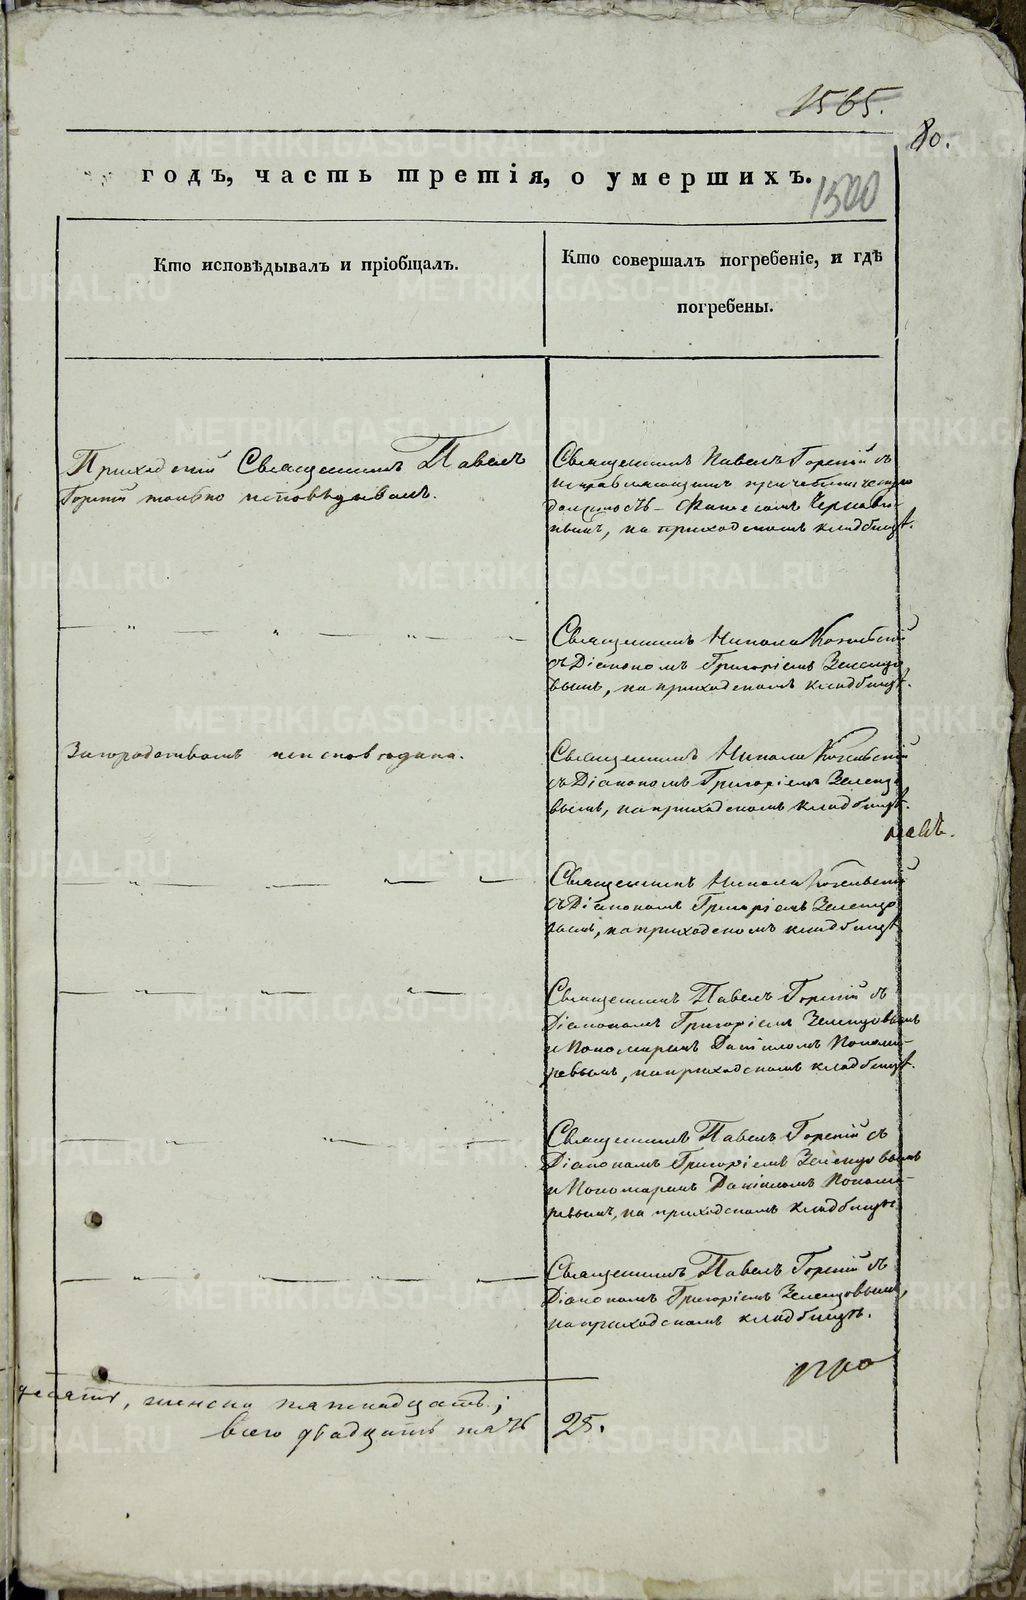 1565.
80.
годъ, часть третія, о умершихъ.
1500
Кто исповѣдывалъ и пріобщалъ.
Кто совершалъ погребеніе, и гдѣ
погребены.
Приходскій Священникъ Павелъ
Горскій только исповѣдывалъ.
Священникъ Павелъ Горскій съ
исправляющимъ причетническую
должность
нымъ, на приходскомъ кладбищѣ.
Священникъ Никола
съ Діакономъ Григоріемъ Зеленцо
вымъ, на приходскомъ кладбищѣ.
За неисповѣдана.
Священникъ Никола
съ Діакономъ Григоріемъ Зеленцо
вымъ, на приходскомъ кладбищѣ.
Священникъ Никола
съ Діакономъ Григоріемъ Зеленцо
вымъ, на приходскомъ кладбищѣ
Священникъ Павелъ Горскій съ
Діакономъ Григоріемъ Зеленцовымъ
и Пономаремъ Даніиломъ Понома-
ревымъ, на приходскомъ кладбищѣ.
Священникъ Павелъ Горскій съ
Діакономъ Григоріемъ Зеленцовымъ
и Пономаремъ Даніиломъ Понома-
ревымъ, на приходскомъ кладбищѣ.
Священникъ Павелъ Горскій съ
Діакономъ Григоріемъ Зеленцовымъ,
на приходскомъ кладбищѣ.
десять, женска пятнадцать;
всего двадцать пять 25.
METRIKI.GASO-URAL.RU